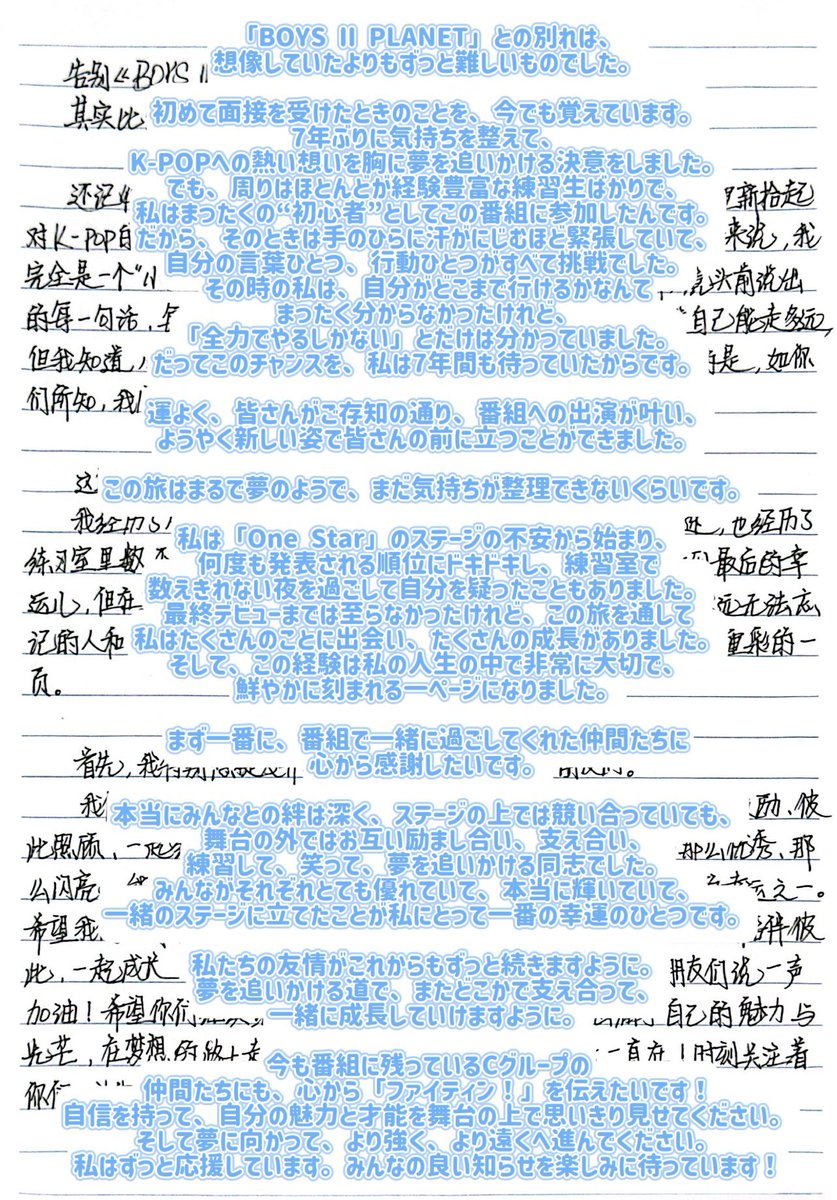 「BOYS II PLANET」との別れは、
想像していたよりもずっと難しいものでした。
告别《BOYS II
其实比
初めて面接を受けたときのことを、今でも覚えています。
7年ぶりに気持ちを整えて、
K-POPへの熱い想いを胸に夢を追いかける決意をしました。
でも、周りはほとんどが経験豊富な練習生ばかりで、
还记 新拾起
私はまったくの“初心者”としてこの番組に参加したんです。
对K-POP自 来说，我
だから、そのときは手のひらに汗がにじむほど緊張していて、
自分の言葉ひとつ、行動ひとつがすべて挑戦でした。
完全是一个“ 头前说出
その時の私は、自分がどこまで行けるかなんて
まったく分からなかったけれど、
的每一句话， 自己能走多远，
「全力でやるしかない」とだけは分かっていました。
但我知道， 是，如你
だってこのチャンスを、私は7年間も待っていたからです。
们所知，我
運よく、皆さんがご存知の通り、番組への出演が叶い、
ようやく新しい姿で皆さんの前に立つことができました。
这
この旅はまるで夢のようで、まだ気持ちが整理できないくらいです。
我经历了 ，也经历了
私は「One Star」のステージの不安から始まり、
练习室里数不 最后的幸
何度も発表される順位にドキドキし、練習室で
数えきれない夜を過ごして自分を疑ったこともありました。
运儿，但在 远无法忘
最終デビューまでは至らなかったけれど、この旅を通して
记的人和 重彩的一
私はたくさんのことに出会い、たくさんの成長がありました。
そして、この経験は私の人生の中で非常に大切で、
页。
鮮やかに刻まれる一ページになりました。
まず一番に、番組で一緒に過ごしてくれた仲間たちに
首先，我特别
心から感謝したいです。
我
本当にみんなとの絆は深く、ステージの上では競い合っていても、
励、彼
舞台の外ではお互い励まし合い、支え合い、
此照顾，一起 那么优秀、那
練習して、笑って、夢を追いかける同志でした。
么闪亮 之一。
みんながそれぞれとても優れていて、本当に輝いていて、
一緒のステージに立てたことが私にとって一番の幸運のひとつです。
希望我 伴彼
此，一起成长 朋友们说一声
私たちの友情がこれからもずっと続きますように。
夢を追いかける道で、またどこかで支え合って、
加油！希望你们 自己的魅力与
一緒に成長していけますように。
光芒，在梦想的路上 一直在！时刻关注着
今も番組に残っているCグループの
你们
仲間たちにも、心から「ファイティン！」を伝えたいです！
自信を持って、自分の魅力と才能を舞台の上で思いきり見せてください。
そして夢に向かって、より強く、より遠くへ進んでください。
私はずっと応援しています。みんなの良い知らせを楽しみに待っています！